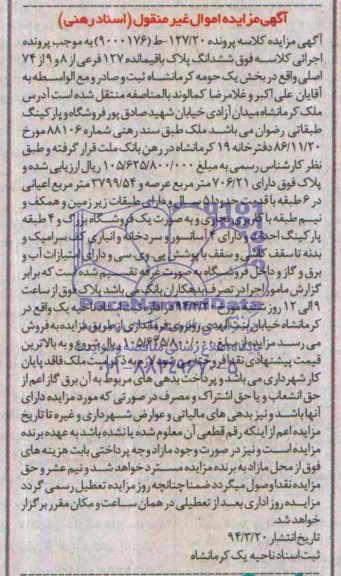 آگهی مزایده اموال غیر منقول (اسناد رهنی)
آگهی مزایده کلاسه پرونده ۱۲۷/۲۰-ط (۹۰۰۰۱۷۶) به موجب پرونده
اجرائی کلاسه فوق ششدانگ پلاک باقیمانده ۱۲۷ فرعی از ۸ و ۹ از ۷۴
اصلی واقع در بخش یک حومه کرمانشاه ثبت و صادر و مع الواسطه به
آقایان علی اکبر و غلامرضا کمالوند بالمناصفه منتقل شده است آدرس
ملک کرمانشاه میدان آزادی خیابان شهید صادق پور فروشگاه و پارکینگ
طبقاتی رضوان می باشد. ملک طبق سند رهنی شماره ۸۸۱۰۶ مورخ
۸۶/۱۱/۲۰ دفترخانه ۱۹ کرمانشاه در رهن بانک ملت قرار گرفته و طبق
نظر کارشناس رسمی به مبلغ ۱۰۵/۶۲۵/۸۰۰/۰۰۰ ریال ارزیابی شده و
پلاک فوق دارای ۷۰۶/۲۱ متر مربع عرصه و ۳۷۹۹/۵۴ متر مربع اعیانی
در ۶ طبقه با قدمت حدود ۵ سال و دارای طبقات زیر زمین و همکف و
نیم طبقه با کاربری تجاری و به صورت یک فروشگاه بزرگ و ۴ طبقه
پارکینگ احداث و دارای ۲ آسانسور و سردخانه و انباری کف سرامیک و
بدنه تا سقف کاشی و سقف با پوشش پی وی سی و دارای امتیازات آب و
برق و گاز و داخل فروشگاه به صورت غرفه تقسیم شده است که برابر
گزارش مامور اجرا در تصرف بدهکاران بانک می باشد پلاک فوق از ساعت
۹ الی ۱۲ روز شنبه مورخ ۹۴/۴/۲۰ در اداره ثبت اسناد ناحیه یک واقع در
کرمانشاه خیابان بنت الهدی روبروی فرمانداری از طریق مزایده به فروش
می رسد. مزایده از مبلغ ۱۰۵/۶۲۵/۸۰۰/۰۰۰ ریال شروع و به بالاترین
قیمت پیشنهادی نقدا فروخته می شود لازم به ذکر است ملک فاقد پایان
کار شهرداری می باشد و پرداخت بدهی های مربوط به آب برق گاز اعم از
حق انشعاب و یا حق اشتراک و مصرف در صورتی که مورد مزایده دارای
آنها باشد و نیز بدهی های مالیاتی و عوارض شهرداری و غیره تا تاریخ
مزایده اعم از اینکه رقم قطعی آن معلوم شده یا نشده باشد به عهده برنده
مزایده است و نیز در صورت وجود مازاد وجه پرداختی بابت هزینه های
فوق از محل مازاد به برنده مزایده مسترد خواهد شد و نیم عشر و حق
مزایده نقدا وصول میگردد ضمنا چنانچه روز مزایده تعطیل رسمی گردد
مزایده روز اداری بعد از تعطیلی در همان ساعت و مکان مقرر برگزار
خواهد شد.
تاریخ انتشار ۹۴/۳/۲۰
ثبت اسناد ناحیه یک کرمانشاه